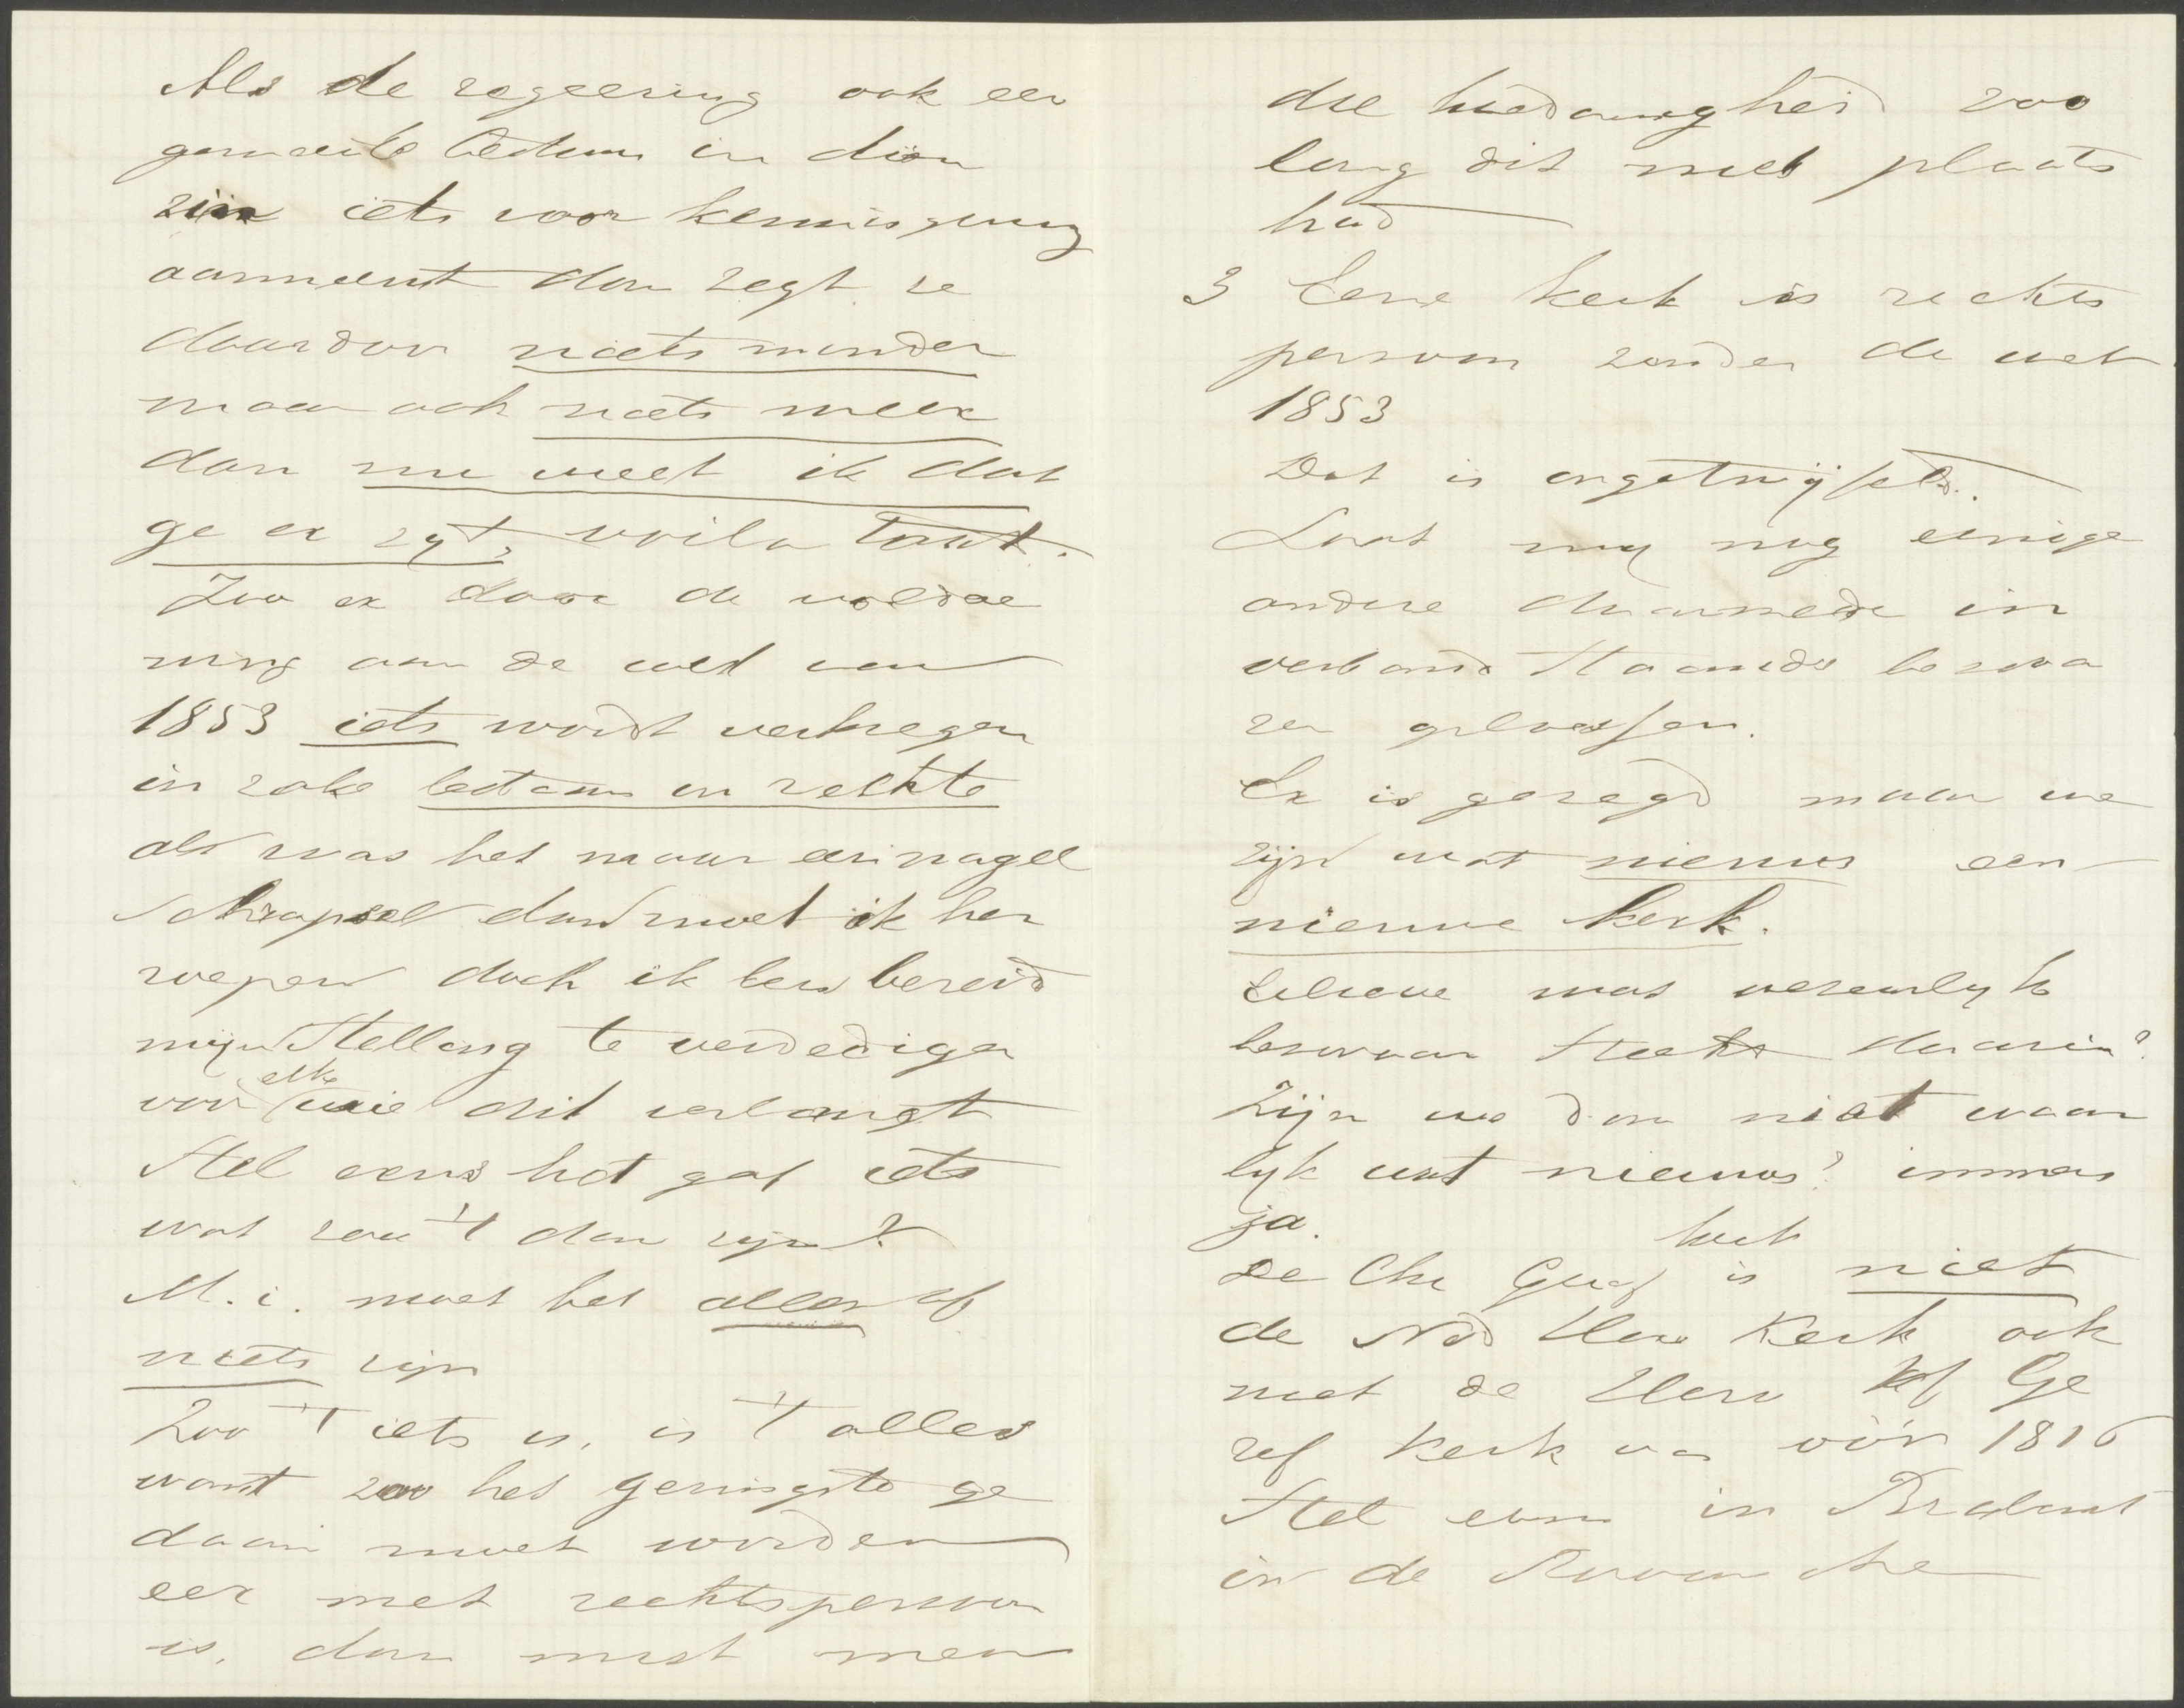 Als de regeering ook een
gemeente Bedum in dien
zin iets voor kennisgeving
aanneemt dan zegt ze
daardoor niets minder
maar ook niets meer
dan nu weet ik dat
ge er zyt, voila tout.
Zoo er door de voldoe
ning aan de wet van
1853 iets wordt verkregen
in zake bestaan en rechte
al was het maar een nagel
schrapsel dan moet ik her
roepen doch ik ben bereid
mijn stelling te verdedigen
voor elke wie dit verlangt
Stel eens het gaf iets
wat zou 't dan zijn?
M. i. moet het alles of
niets zijn
Zoo 't iets is, is 't alles
want zoo het geringste ge
daan moet worden
eer met rechtspersoon
is, dan mist men
die hoedanigheid zoo
lang dit niet plaats
had
3 Eene kerk is rechts
persoon zonder de wet
1853
Dat is ongetwijfeld.
Laat my nog eenige
andere daarmede in
verband staande bezwa
ren oplossen.
Er is gezegd maar we
zijn wat nieuws een
nieuwe kerk.
Lieve wat wezenlyk
bezwaar steekt daarin?
Zijn we dan niet waar
lyk wat nieuws? immers
ja.
kerk
De Chr Geref is niet
de Ned Herv Kerk ook
niet de Herv of Ge
ref Kerk van vóór 1816
Stel eens in Brabant
in de Roomsche